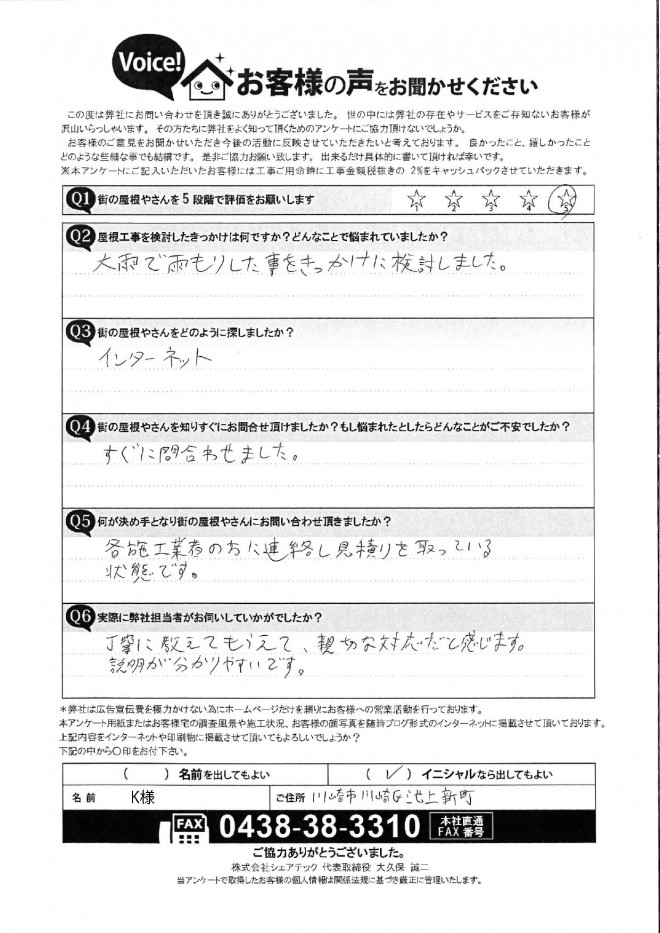 Voice!
お客様の声をお聞かせください
この度は弊社にお問い合わせを頂き誠にありがとうございました。世の中には弊社の存在やサービスをご存知ないお客様が
沢山いらっしゃいます。その方たちに弊社をよく知って頂くためのアンケートにご協力頂けないでしょうか。
お客様のご意見をお聞かせいただき今後の活動に反映させていただきたいと考えております。良かったこと、嬉しかったこと
どのような些細な事でも結構です。是非ご協力お願い致します。出来るだけ具体的に書いて頂ければ幸いです。
※本アンケートにご記入いただいたお客様には工事ご用命時に工事金額税抜きの2%をキャッシュバックさせていただきます。
Q1 街の屋根やさんを5段階で評価をお願いします ☆1 ☆2 ☆3 ☆4 ☆5
Q2 屋根工事を検討したきっかけは何ですか?どんなことで悩まれていましたか?
大雨で雨もりした事をきっかけに検討しました。
Q3 街の屋根やさんをどのように探しましたか?
インターネット
Q4 街の屋根やさんを知りすぐにお問合せ頂けましたか?もし悩まれたとしたらどんなことがご不安でしたか?
すぐに問合わせました。
Q5 何が決め手となり街の屋根やさんにお問い合わせ頂きましたか?
各施工業者の方に連絡し見積りを取っている
状態です。
Q6 実際に弊社担当者がお伺いしていかがでしたか?
丁寧に教えてもらえて、親切な対応だと感じます。
説明が分かりやすいです。
*弊社は広告宣伝費を極力かけない為にホームページだけを頼りにお客様への営業活動を行っております。
本アンケート用紙またはお客様宅の調査風景や施工状況、お客様の顔写真を随時ブログ形式のインターネットに掲載させて頂いております。
上記内容をインターネットや印刷物に掲載させて頂いてもよろしいでしょうか?
下記の中から〇印をお付下さい。
( ) 名前を出してもよい ( ✓ ) イニシャルなら出してもよい
名前 K様 ご住所 川崎市川崎区池上新町
FAX 0438-38-3310 本社直通 FAX番号
ご協力ありがとうございました。
株式会社シェアテック 代表取締役 大久保 誠二
当アンケートで取得したお客様の個人情報は関係法規に基づき厳正に管理いたします。